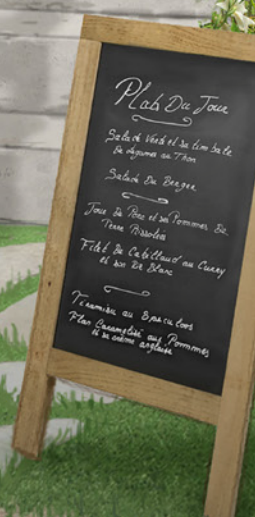 Plats Du Jour
Salade Verte et sa timbale
De légumes au Thon
Salade Du Berger
Joue de Porc et ses Pommes De
Terre Rissolées
Filet De Cabillaud au Curry
et son Riz Blanc
Tiramisu au Speculoos
Flan Caramélisé aux Pommes
et sa crème anglaise